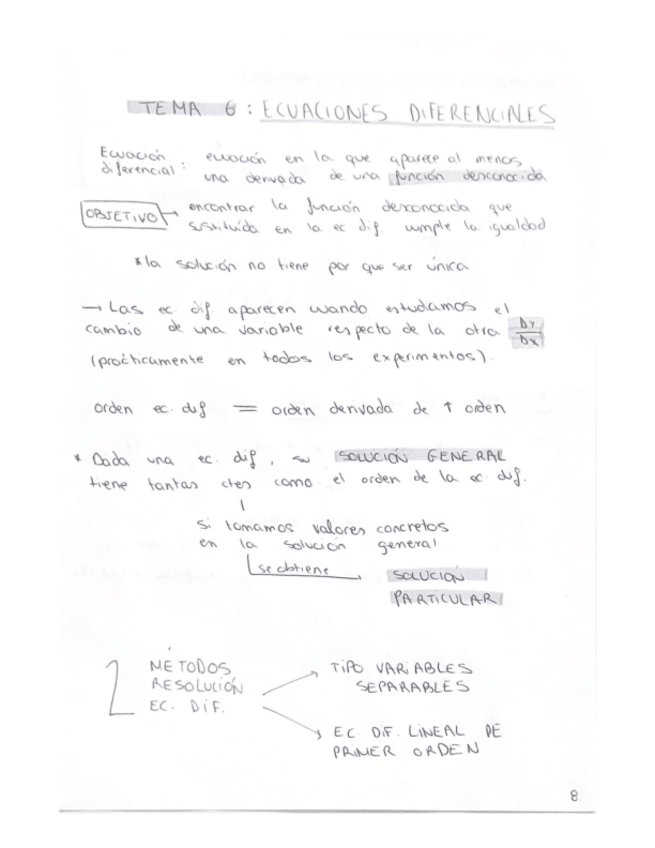 TEMA 6: ECUACIONES DIFERENCIALES
Ecuación diferencial: ecuación en la que aparece al menos
una derivada de una función desconocida
OBJETIVO → encontrar la función desconocida que
sustituida en la ec dif cumple la igualdad
* la solución no tiene por que ser única
→ Las ec. dif. aparecen cuando estudiamos el
cambio de una variable respecto de la otra Δy/Δx
(prácticamente en todos los experimentos).
orden ec. dif = orden derivada de ↑ orden
* Dada una ec. dif, su SOLUCIÓN GENERAL
tiene tantas ctes como el orden de la ec. dif.
Si tomamos valores concretos
en la solución general
se obtiene → SOLUCIÓN
PARTICULAR
2 MÉTODOS
RESOLUCIÓN
EC. DIF.
TIPO VARIABLES
SEPARABLES
EC. DIF. LINEAL DE
PRIMER ORDEN
8